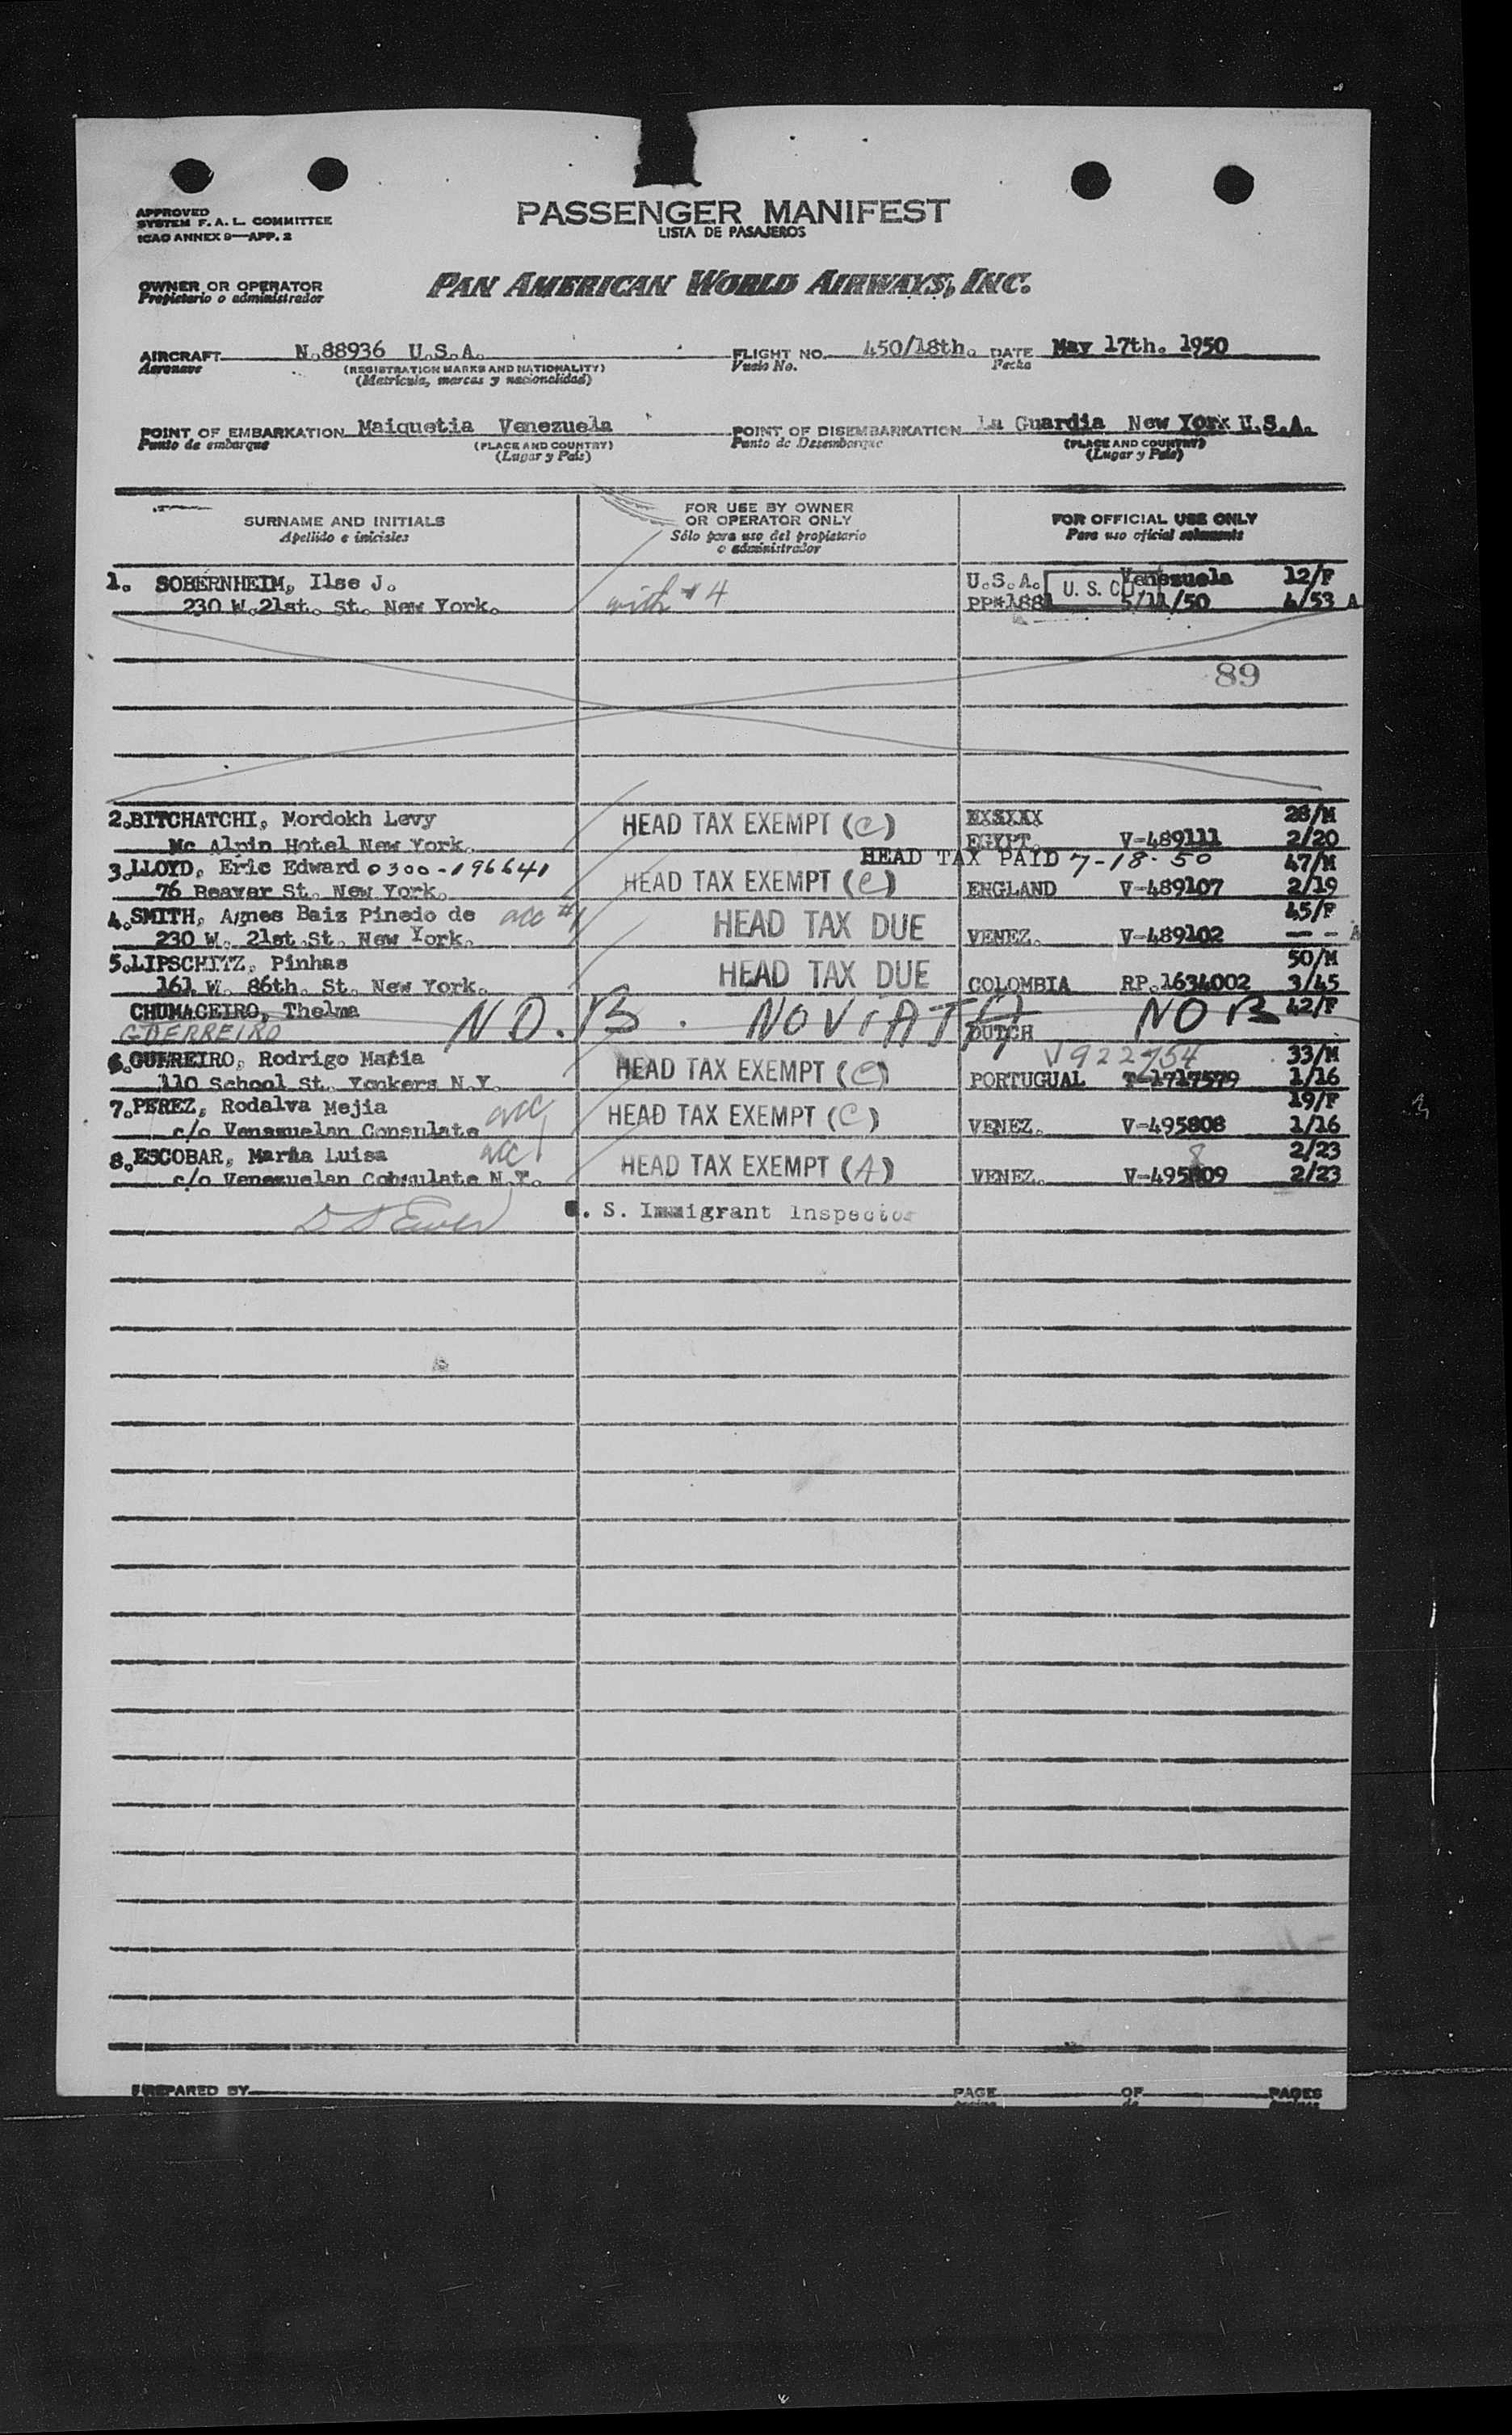 APPROVED
SYSTEM F. A. L. COMMITTEE
ICAO ANNEX 9—APP. 2
PASSENGER MANIFEST
LISTA DE PASAJEROS
OWNER OR OPERATOR
Propietario o administrador
PAN AMERICAN WORLD AIRWAYS, INC.
AIRCRAFT N.88936 U.S.A. FLIGHT NO. 450/18th. DATE May 17th. 1950
Aeronave (REGISTRATION MARKS AND NATIONALITY) Vuelo No. Fecha
(Matricula, marcas y nacionalidad)
POINT OF EMBARKATION Maiquetia Venezuela POINT OF DISEMBARKATION La Guardia New York U.S.A.
Punto de embarque (PLACE AND COUNTRY) Punto de Desembarque (PLACE AND COUNTRY)
(Lugar y Pais) (Lugar y Pais)
SURNAME AND INITIALS FOR USE BY OWNER OR OPERATOR ONLY FOR OFFICIAL USE ONLY
Apellido e iniciales Sólo para uso del propietario o administrador Para uso oficial solamente
1. SOBERNHEIM, Ilse J. U.S.A. Venezuela 12/F
230 W.21st. St. New York. with #4 PP#1881 U. S. C. 5/11/50 4/53 A
89
2.BITCHATCHI, Mordokh Levy HEAD TAX EXEMPT (C) 28/M
Mc Alpin Hotel New York. EGYPT. V-489111 2/20
HEAD TAX PAID 7-18-50
3.LLOYD, Eric Edward 0300-196641 HEAD TAX EXEMPT (C) 47/M
76 Beaver St. New York. ENGLAND V-489107 2/19
4.SMITH, Agnes Baiz Pinedo de acc #1 HEAD TAX DUE 45/F
230 W. 21st.St. New York. VENEZ. V-489102 — - A
5.LIPSCHITZ, Pinhas HEAD TAX DUE 50/M
161 W. 86th. St. New York. COLOMBIA RP.1634002 3/45
CHUMACEIRO, Thelma NO.B. NOVIAJA NO B 42/F
GUERREIRO DUTCH
6.GUFREIRO, Rodrigo Maria HEAD TAX EXEMPT (C) V922754 33/M
110 School St. Yonkers N.Y. PORTUGUAL T-1717579 1/16
7.PEREZ, Rodalva Mejia acc HEAD TAX EXEMPT (C) 19/F
c/o Venezuelan Consulate VENEZ. V-495808 1/16
8.ESCOBAR, Maria Luisa acc HEAD TAX EXEMPT (A) 8 2/23
c/o Venezuelan Cobsulate N.Y. VENEZ. V-495809 2/23
. S. Immigrant Inspector
PREPARED BY PAGE OF PAGES